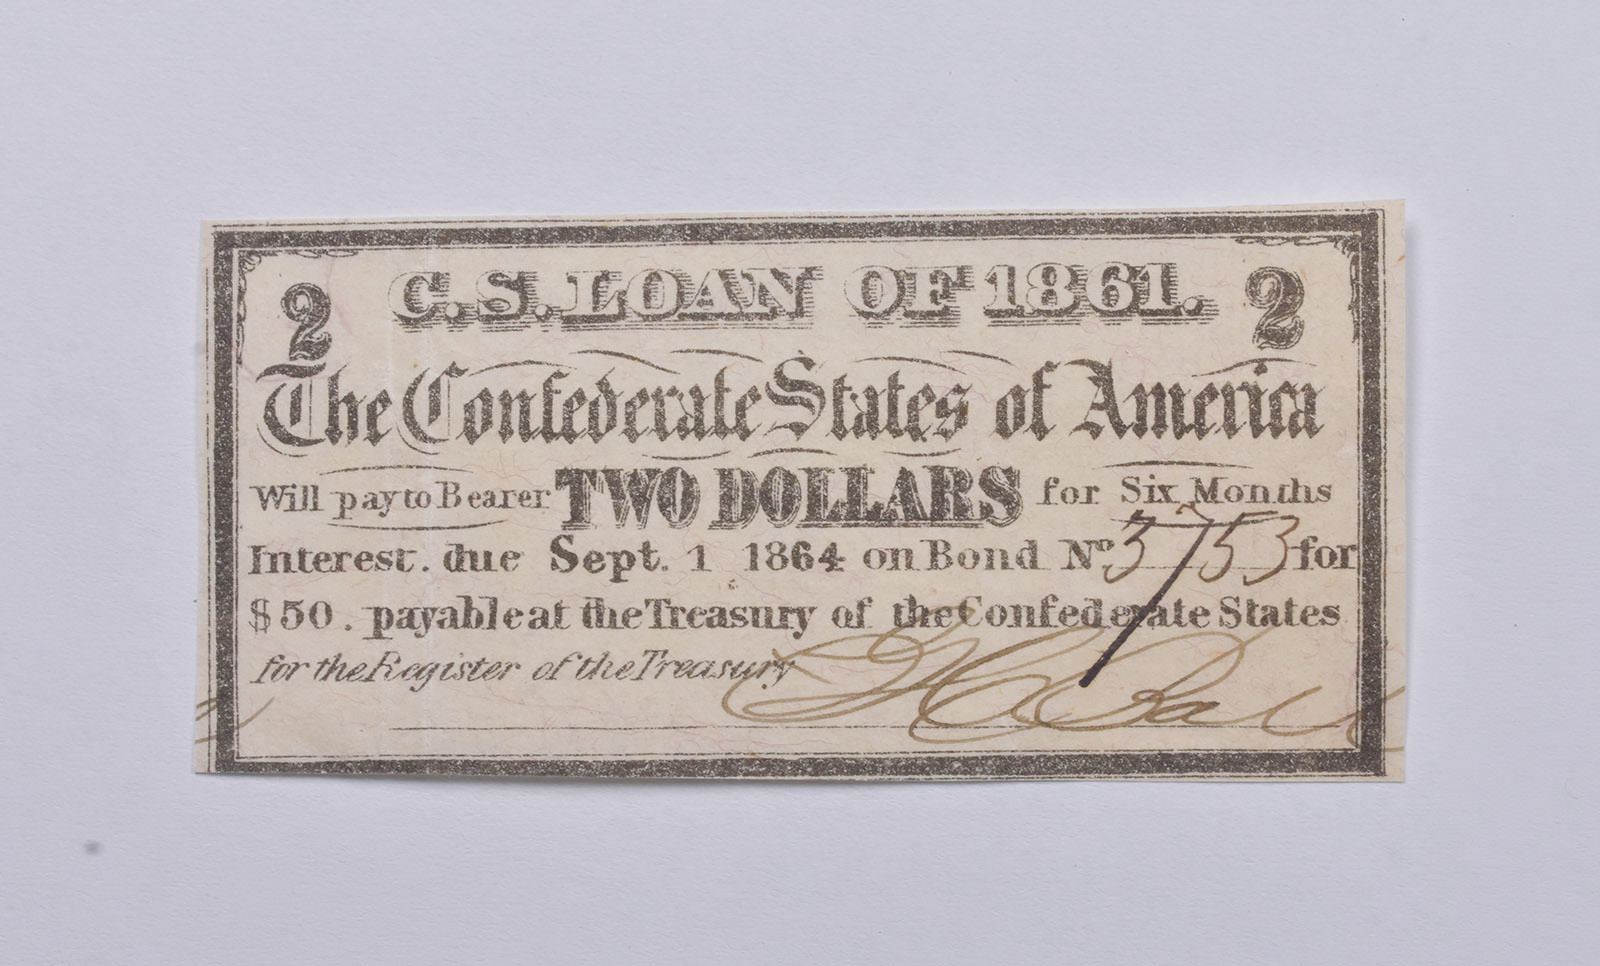 2 C. S. LOAN OF 1861. 2
The Confederate States of America
Will pay to Bearer TWO DOLLARS for Six Months
Interest. due Sept. 1 1864 on Bond No 3753 for
$50. payable at the Treasury of the Confederate States
for the Register of the Treasury